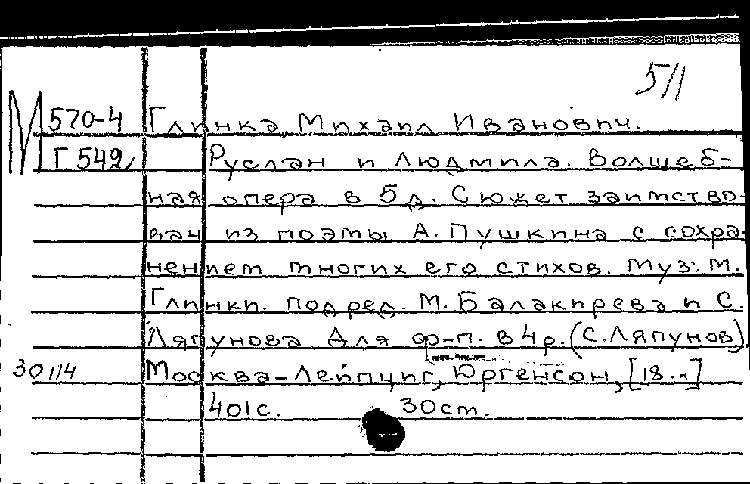 5/1
М 570-4 Глинка Михаил Иванович.
Г 549, Руслан и Людмила. Волшеб-
ная опера в 5д. Сюжет заимство-
ван из поэмы А. Пушкина с сохра-
нением многих его стихов. Муз. М.
Глинки. под ред. М. Балакирева и С.
Ляпунова Для ф-п. в 4р. (С. Ляпунов)
30114 Москва-Лейпциг, Юргенсон, [18..]
401с. 30см.